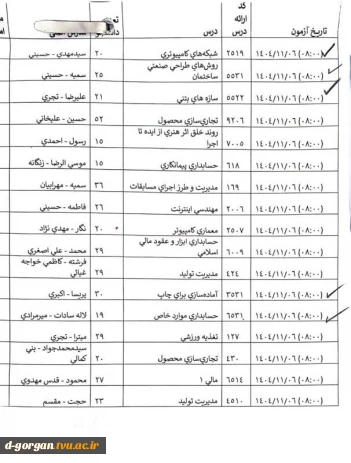 تاریخ آزمون کد ارائه درس درس دانشجو
۱۴۰۴/۱۱/۰۶ (۰۸:۰۰) ۲۵۱۹ شبکه‌هاي کامپیوتري ۲۰ سیدمهدي - حسیني
۱۴۰۴/۱۱/۰۶ (۰۸:۰۰) ۵۵۳۱ روش‌هاي طراحي صنعتي ساختمان ۲۵ سمیه - حسیني
۱۴۰۴/۱۱/۰۶ (۰۸:۰۰) ۵۵۲۲ سازه هاي بتني ۲۱ علیرضا - تجري
۱۴۰۴/۱۱/۰۶ (۰۸:۰۰) ۹۲۰۶ تجاري‌سازي محصول ۵۲ حسین - علیخاني
۱۴۰۴/۱۱/۰۶ (۰۸:۰۰) ۷۰۰۵ روند خلق اثر هنري از ایده تا اجرا ۱۵ رسول - احمدي
۱۴۰۴/۱۱/۰۶ (۰۸:۰۰) ۶۱۸ حسابداري پیمانکاري ۱۵ موسي الرضا - زنگانه
۱۴۰۴/۱۱/۰۶ (۰۸:۰۰) ۱۶۹ مدیریت و طرز اجراي مسابقات ۳۶ سمیه - مهرابیان
۱۴۰۴/۱۱/۰۶ (۰۸:۰۰) ۲۰۰۶ مهندسي اینترنت ۲۶ فاطمه - حسیني
۱۴۰۴/۱۱/۰۶ (۰۸:۰۰) ۲۵۰۷ معماري کامپیوتر ۲۰ نگار - مهدي نژاد
۱۴۰۴/۱۱/۰۶ (۰۸:۰۰) ۶۰۰۹ حسابداري ابزار و عقود مالي اسلامي ۲۹ محمد - علي اصغري
۱۴۰۴/۱۱/۰۶ (۰۸:۰۰) ۴۲۴ مدیریت تولید ۲۹ فرشته - کاظمي خواجه غیاثي
۱۴۰۴/۱۱/۰۶ (۰۸:۰۰) ۳۵۳۱ آماده‌سازي براي چاپ ۳۰ پریسا - اکبري
۱۴۰۴/۱۱/۰۶ (۰۸:۰۰) ۶۵۳۱ حسابداري موارد خاص ۱۹ لاله سادات - میرمرادي
۱۴۰۴/۱۱/۰۶ (۰۸:۰۰) ۱۲۷ تغذیه ورزشي ۲۹ میترا - تجري
۱۴۰۴/۱۱/۰۶ (۰۸:۰۰) ۴۳۰ تجاري‌سازي محصول ۲۰ سیدمحمدجواد - بني کمالي
۱۴۰۴/۱۱/۰۶ (۰۸:۰۰) ۶۵۱۴ مالي ۱ ۲۷ محمود - قدس مهدوي
۱۴۰۴/۱۱/۰۶ (۰۸:۰۰) ۴۵۱۰ مدیریت تولید ۲۳ حجت - مقسم
d-gorgan.tvu.ac.ir